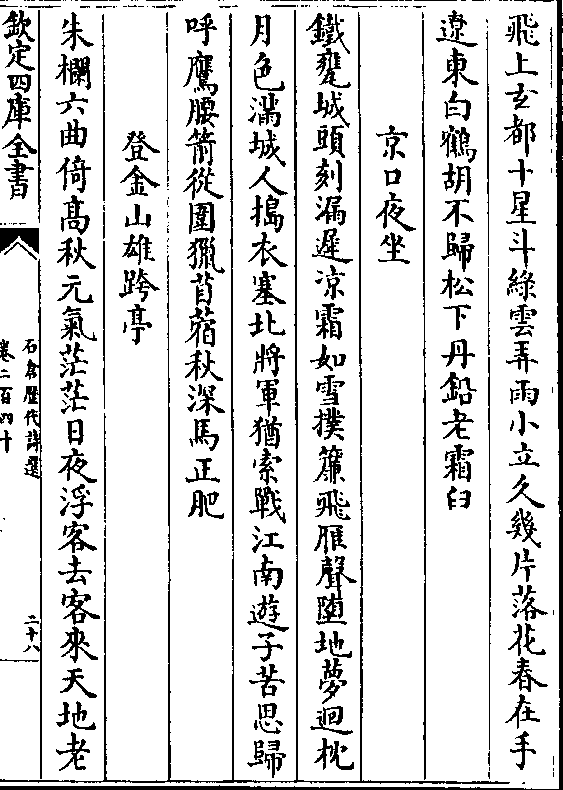 飛上玄都十星斗綠雲弄雨小立久幾片落花春在手
遼東白鶴胡不歸松下丹鉛老霜臼
京口夜坐
鐵甕城頭刻漏遲凉霜如雪撲簾飛雁聲墮地夢迴枕
月色滿城人搗衣塞北將軍猶索戰江南遊子苦思歸
呼鷹腰箭從圍獵苜蓿秋深馬正肥
登金山雄跨亭
朱欄六曲倚高秋元氣茫茫日夜浮客去客來天地老
欽定四庫全書
石倉歷代詩選
卷二百四十
二十八